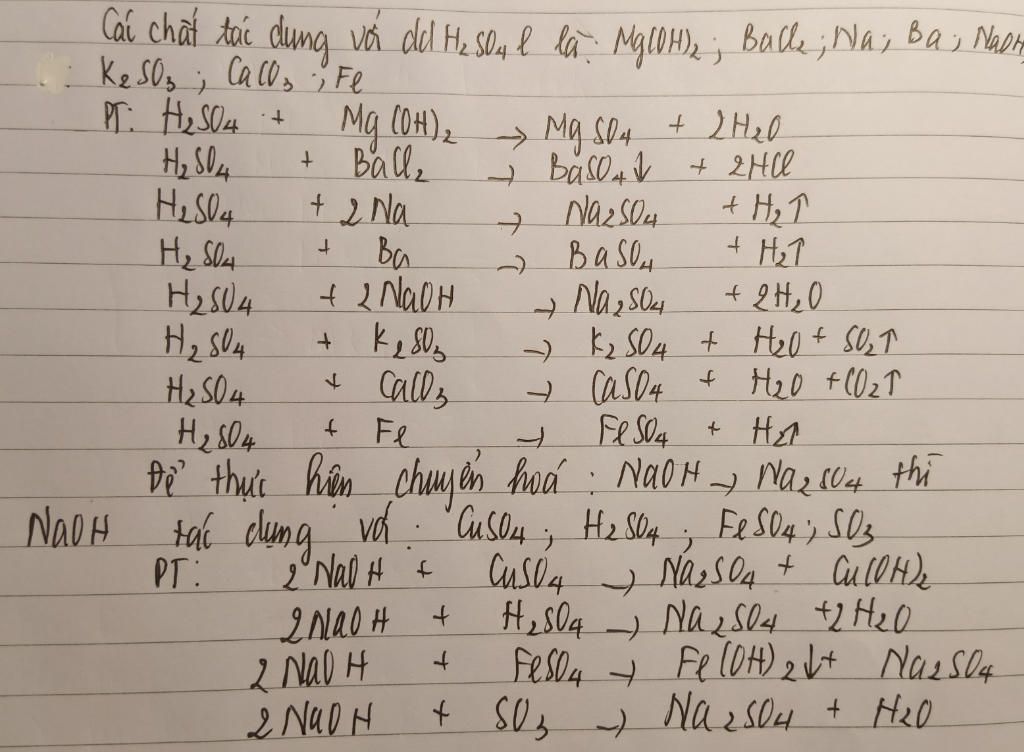 Các chất tác dụng với dd H₂SO₄ l là: Mg(OH)₂; BaCl₂; Na; Ba; NaOH
K₂SO₃; CaCO₃; Fe
PT: H₂SO₄ + Mg(OH)₂ → MgSO₄ + 2H₂O
H₂SO₄ + BaCl₂ → BaSO₄↓ + 2HCl
H₂SO₄ + 2Na → Na₂SO₄ + H₂↑
H₂SO₄ + Ba → BaSO₄ + H₂↑
H₂SO₄ + 2NaOH → Na₂SO₄ + 2H₂O
H₂SO₄ + K₂SO₃ → K₂SO₄ + H₂O + SO₂↑
H₂SO₄ + CaCO₃ → CaSO₄ + H₂O + CO₂↑
H₂SO₄ + Fe → FeSO₄ + H₂↑
Để thực hiện chuyển hoá: NaOH → Na₂SO₄ thì
NaOH tác dụng với: CuSO₄; H₂SO₄; FeSO₄; SO₃
PT: 2NaOH + CuSO₄ → Na₂SO₄ + Cu(OH)₂
2NaOH + H₂SO₄ → Na₂SO₄ + 2H₂O
2NaOH + FeSO₄ → Fe(OH)₂↓ + Na₂SO₄
2NaOH + SO₃ → Na₂SO₄ + H₂O